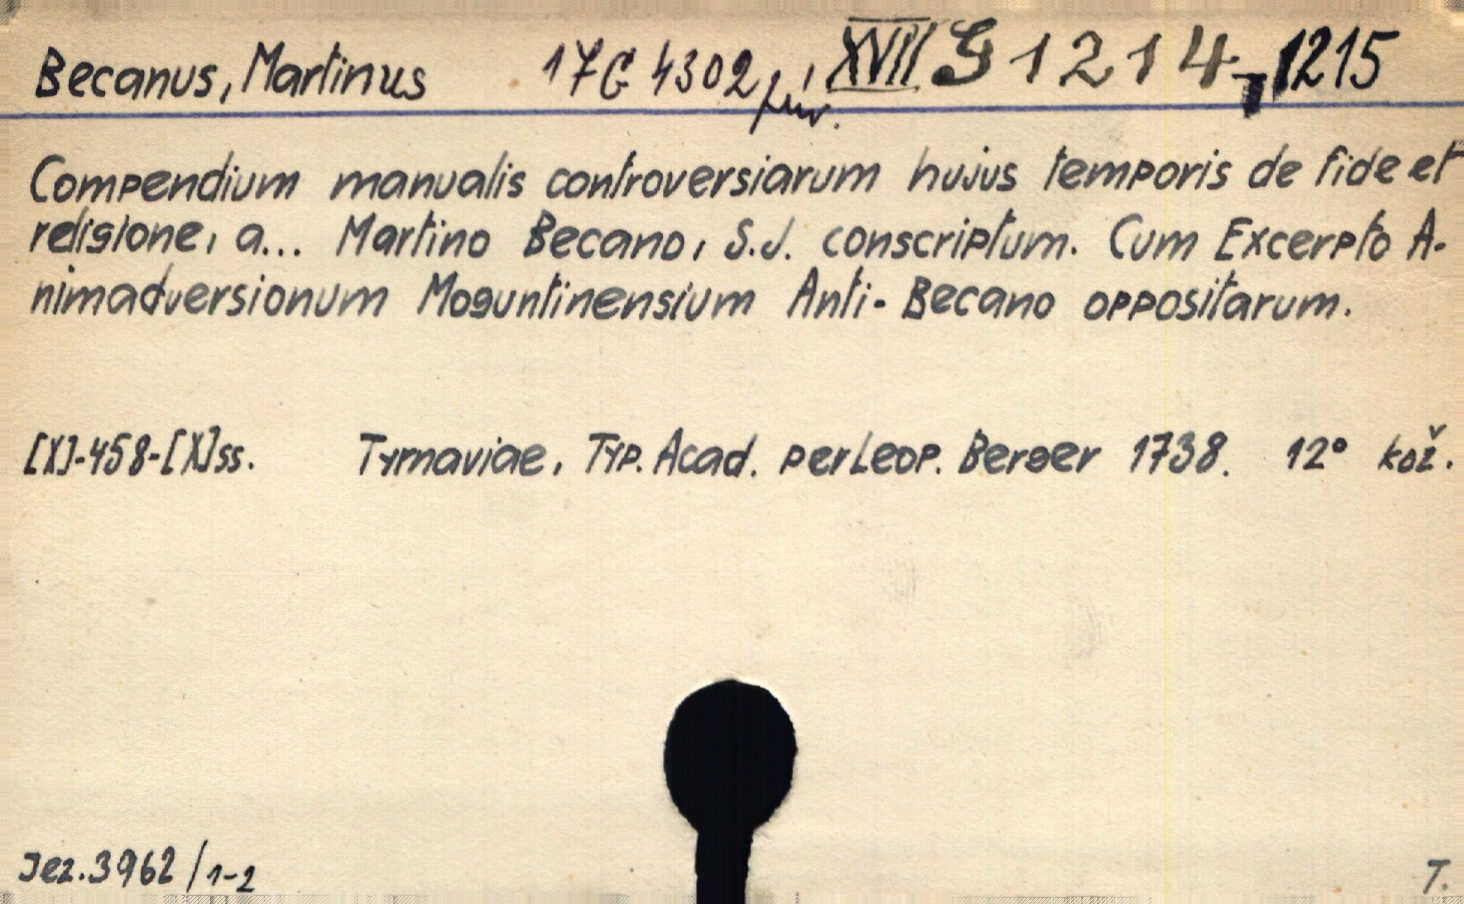 Becanus, Martinus 17G 4302 priv. XVII G 1214-1215
Compendium manualis controversiarum hujus temporis de fide et
religione, a... Martino Becano, S.J. conscriptum. Cum Excerpto A-
nimadversionum Moguntinensium Anti-Becano oppositarum.
[X]-458-[X]ss. Tyrnaviae, Typ. Acad. per Leop. Berger 1738. 12° kož.
Jez. 3962/1-2
T.